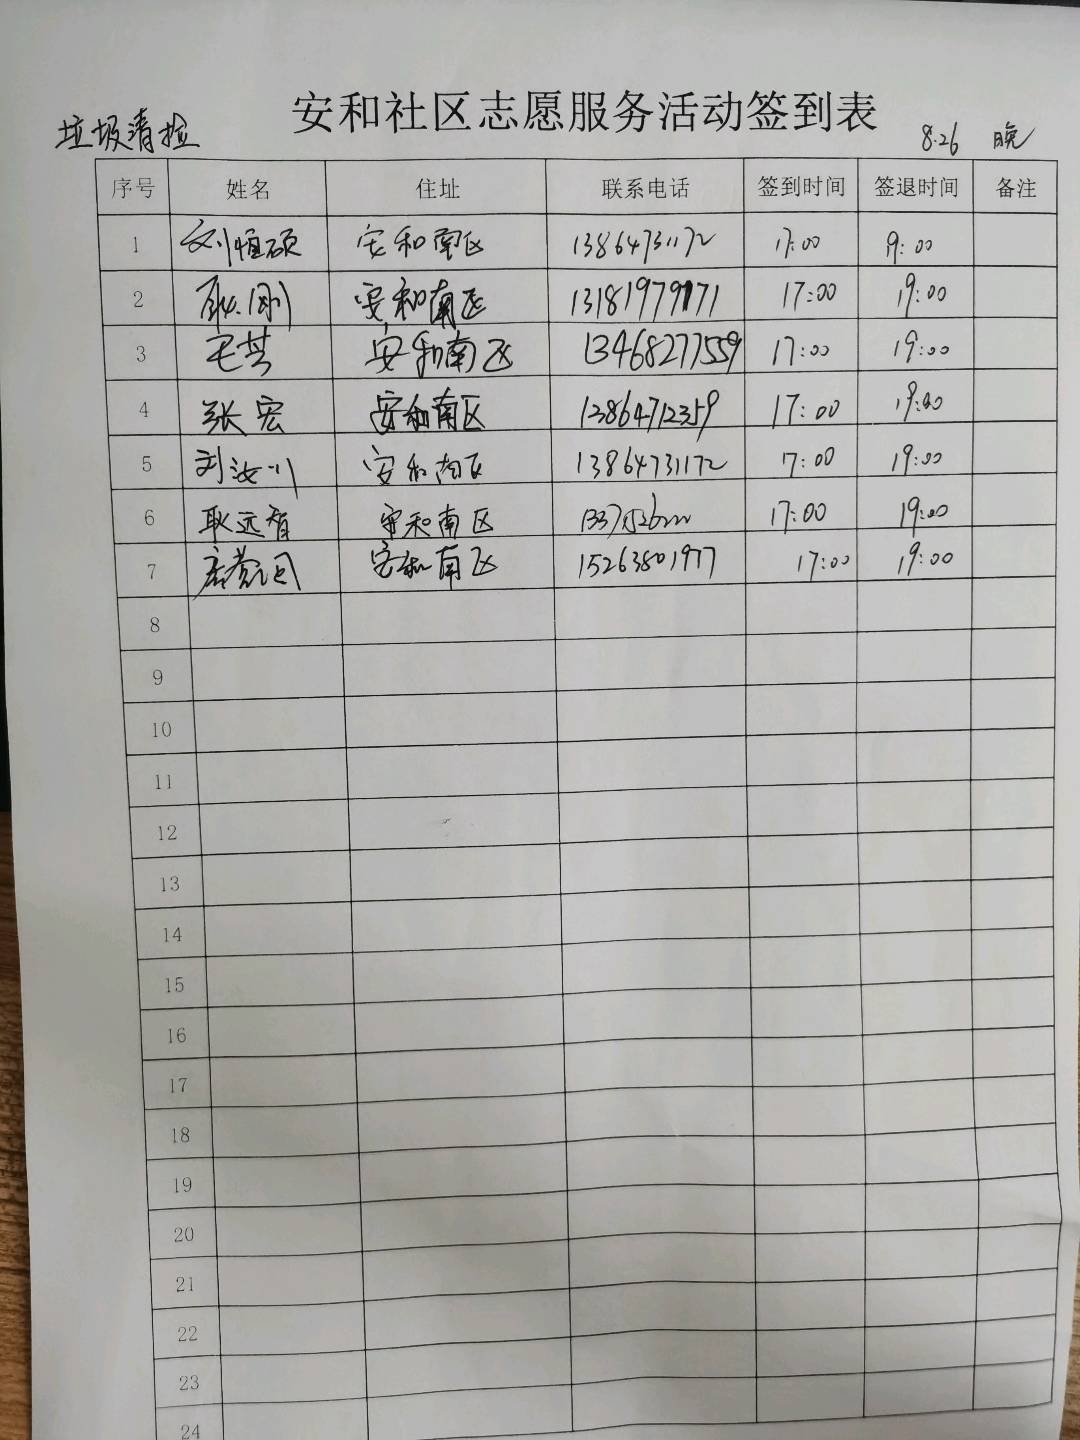 安和社区志愿服务活动签到表
垃圾清捡 8.26 晚
序号 姓名 住址 联系电话 签到时间 签退时间 备注
1 刘恒硕 安和南区 13864731172 17:00 19:00
2 耿刚 安和南区 13181979171 17:00 19:00
3 毛芸 安和南区 13468277559 17:00 19:00
4 张宏 安和南区 13864712359 17:00 19:00
5 刘汝川 安和南区 13864731172 17:00 19:00
6 耿远智 安和南区 17:00 19:00
7 安和南区 15263801977 17:00 19:00
8
9
10
11
12
13
14
15
16
17
18
19
20
21
22
23
24